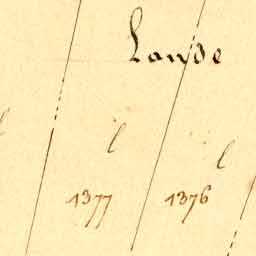 Lande
l
l
1377
1376